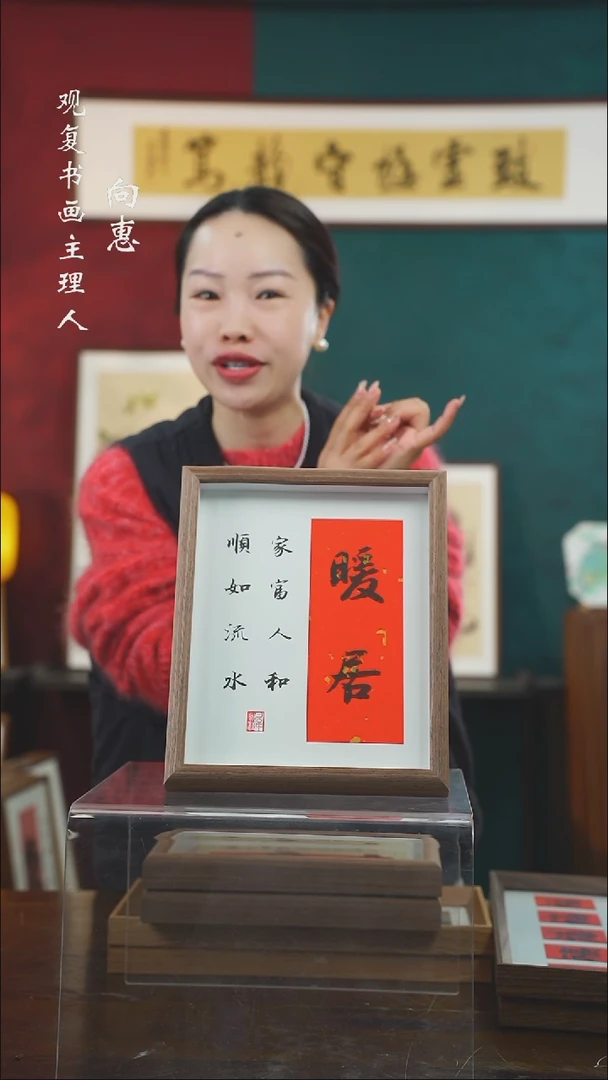 观复书画主理人
向惠
致虛極守靜篤
暖居
家富人和
順如流水